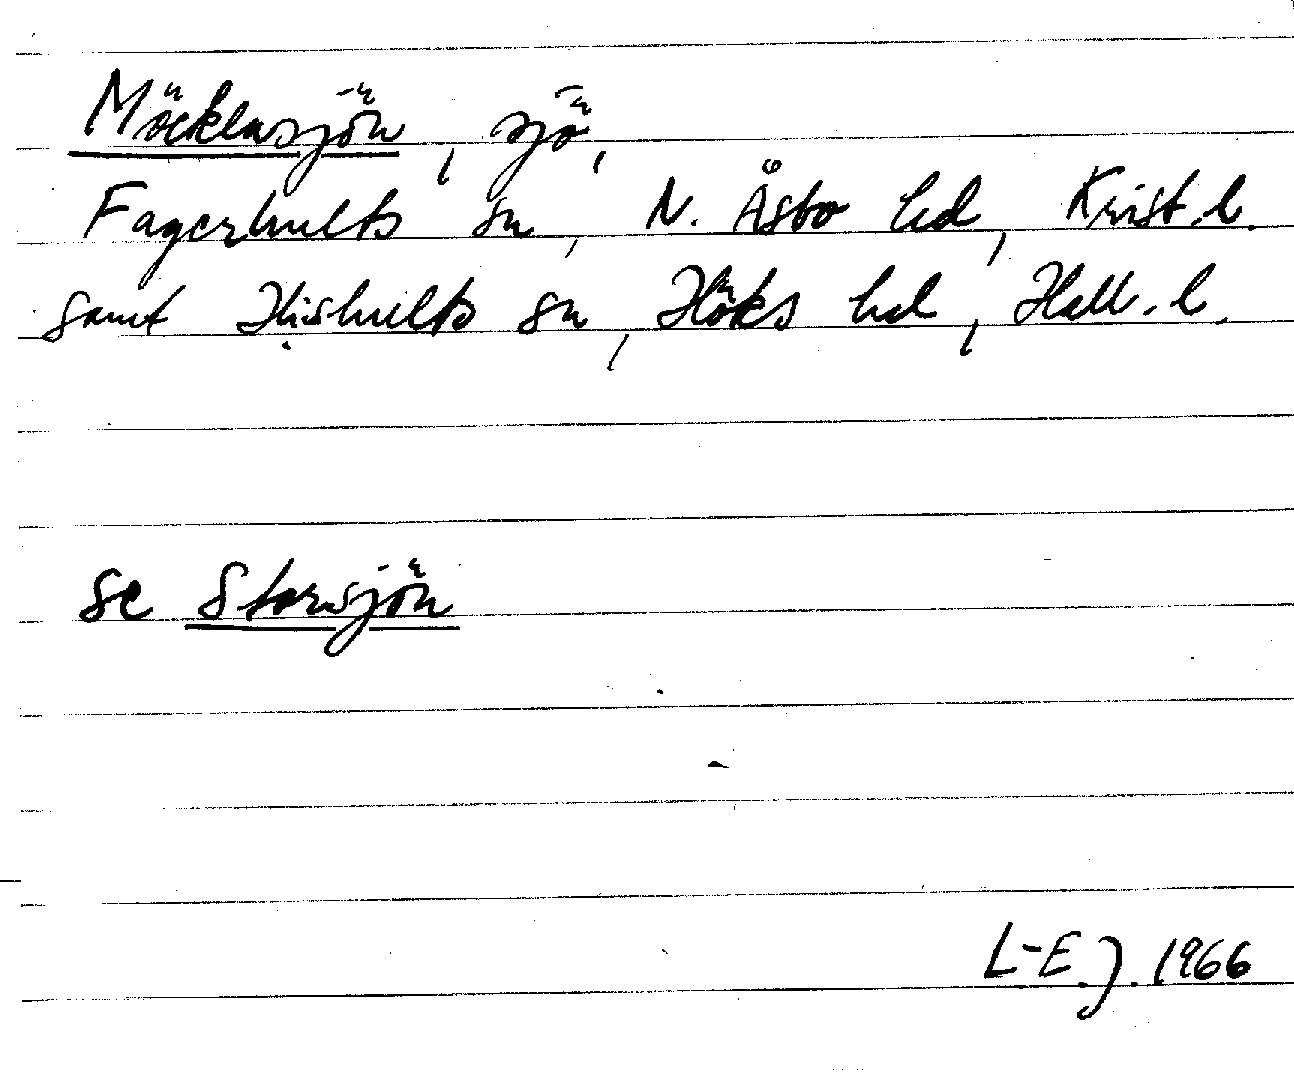 Möcklasjön, sjö,
Fagerhults sn, N. Åsbo hd, Krist.l.
samt Hishults sn, Höks hd, Hall.l.
se Storsjön
L-E.J. 1966